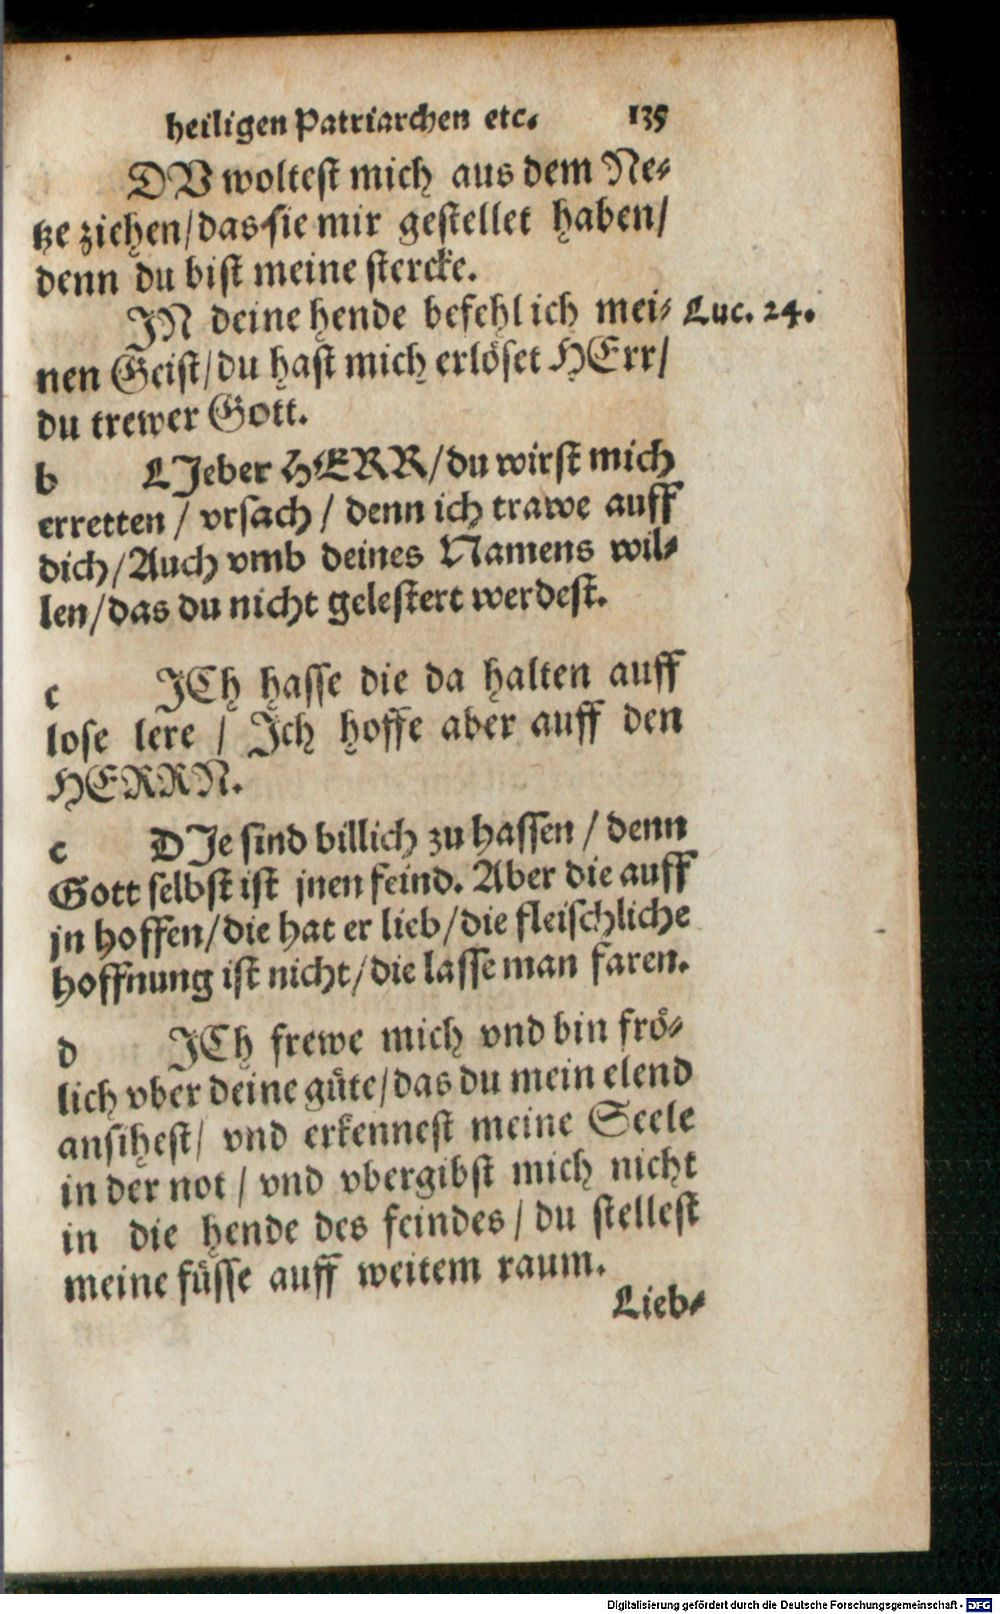 heiligen Patriarchen etc. 135
DV woltest mich aus dem Ne-
tze ziehen/das sie mir gestellet haben/
denn du bist meine stercke.
IN deine hende befehl ich mei- Luc. 24.
nen Geist/du hast mich erlöset HErr/
du trewer Gott.
b LIeber HERR/du wirst mich
erretten / vrsach / denn ich trawe auff
dich/Auch vmb deines Namens wil-
len/das du nicht gelestert werdest.
c ICh hasse die da halten auff
lose lere / Ich hoffe aber auff den
HERRN.
c DIe sind billich zu hassen / denn
Gott selbst ist jnen feind. Aber die auff
jn hoffen/die hat er lieb/die fleischliche
hoffnung ist nicht/die lasse man faren.
d ICh frewe mich vnd bin frö-
lich vber deine güte/das du mein elend
ansihest/ vnd erkennest meine Seele
in der not / vnd vbergibst mich nicht
in die hende des feindes / du stellest
meine füsse auff weitem raum.
Lieb-
Digitalisierung gefördert durch die Deutsche Forschungsgemeinschaft - DFG